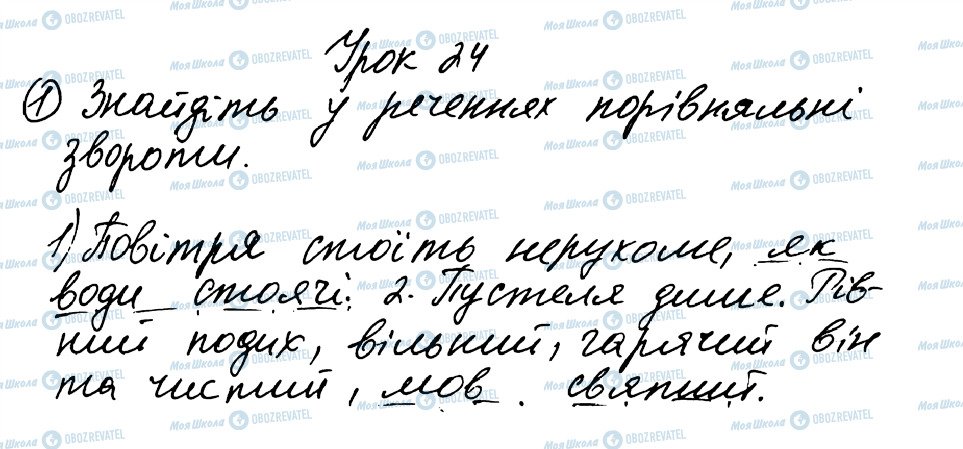 Урок 24
① Знайдіть у реченнях порівняльні
звороти.
1) Повітря стоїть нерухоме, як
води стоячі. 2. Пустеля дише. Рів-
ний подих, вільний, гарячий він
та чистий, мов святий.